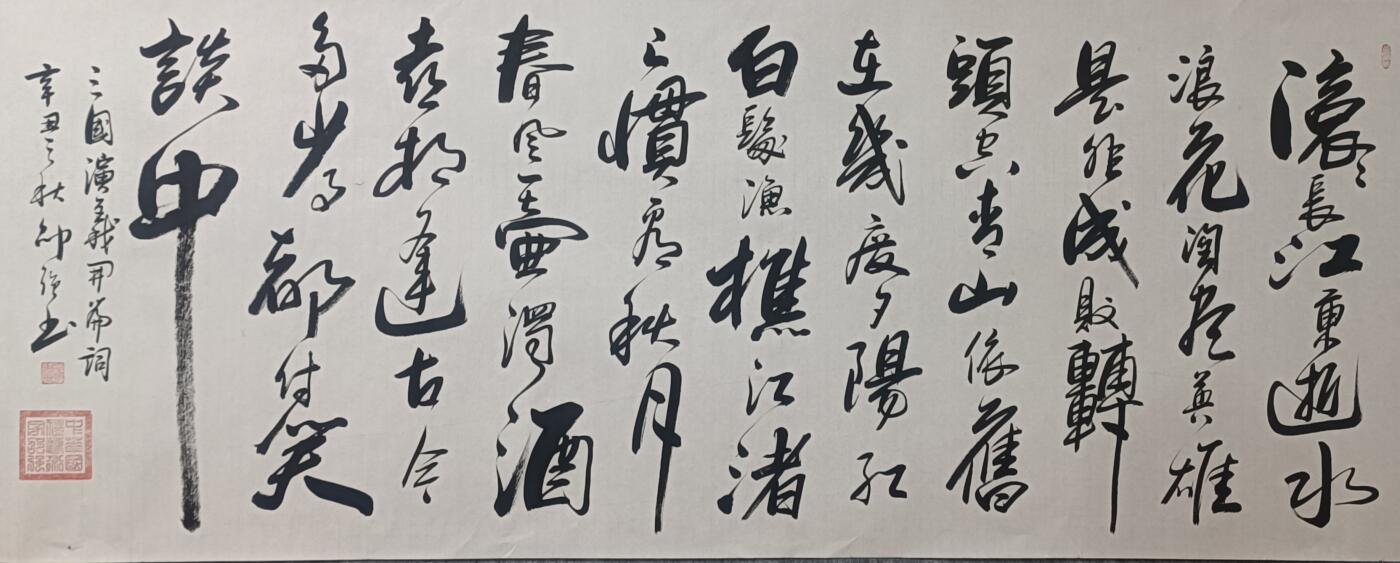 滚々長江東逝水
浪花淘盡英雄
是非成敗轉
頭空青山依舊
在幾度夕陽紅
白髮漁樵江渚
上慣看秋月
春風一壺濁酒
喜相逢古今
多少事都付笑
談中
三國演義開篇詞
辛丑之秋书